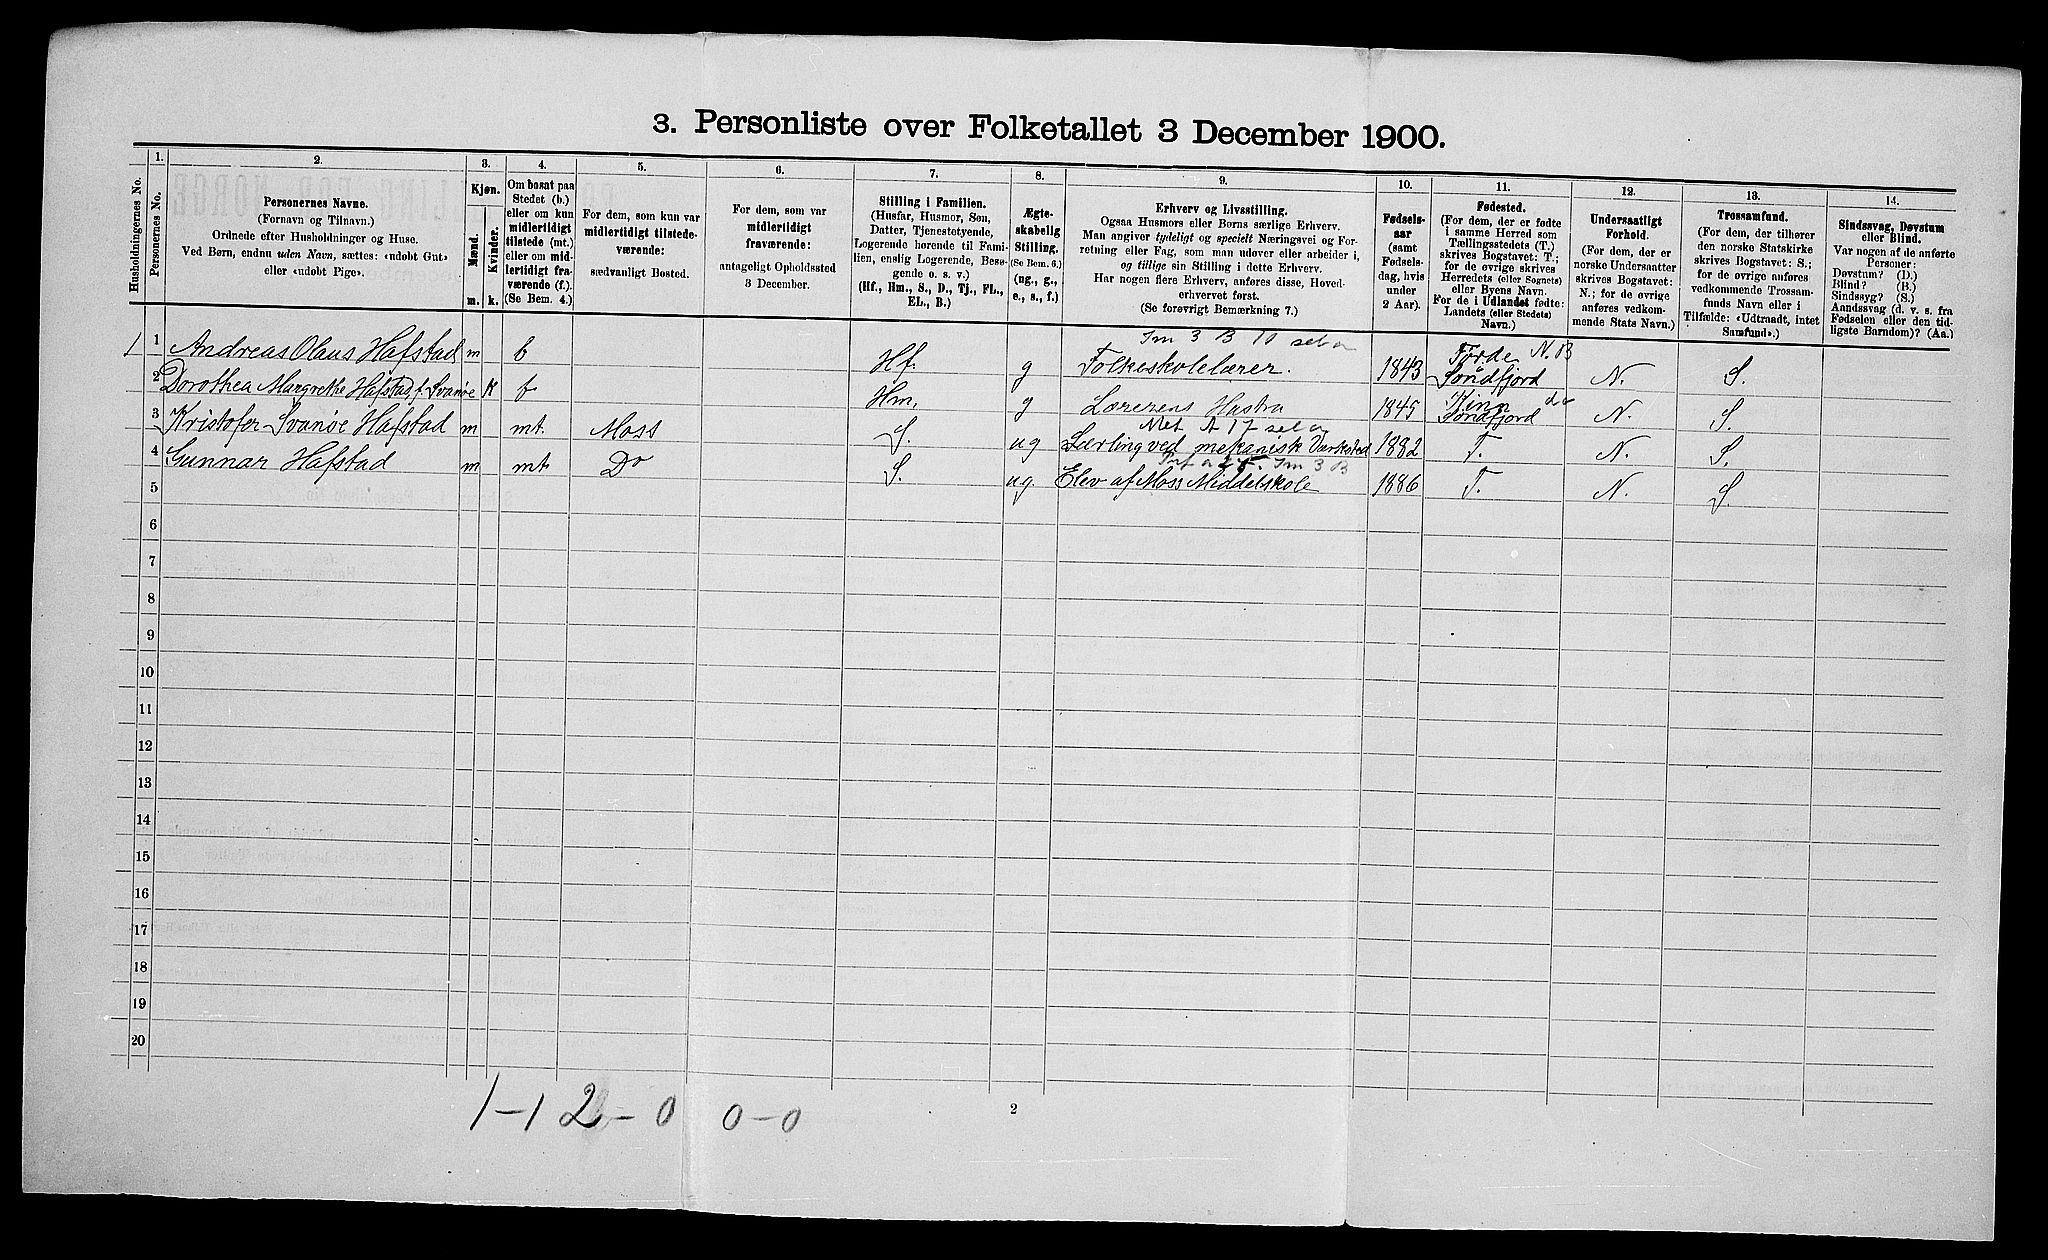 3. Personliste over Folketallet 3 December 1900.
Husholdningernes No.
1.
Personernes No.
2.
Personernes Navne.
(Fornavn og Tilnavn.)
Ordnede efter Husholdninger og Huse.
Ved Børn, endnu uden Navn, sættes: «udobt Gut»
eller «udobt Pige».
3.
Kjøn.
Mænd.
Kvinder.
m.
k.
4.
Om bosat paa
Stedet (b.)
eller om kun
midlertidigt
tilstede (mt.)
eller om mid-
lertidigt fra-
værende (f.).
(Se Bem. 4.)
5.
For dem, som kun var
midlertidigt tilstede-
værende:
sædvanligt Bosted.
6.
For dem, som var
midlertidigt
fraværende:
antageligt Opholdssted
3 December.
7.
Stilling i Familien.
(Husfar, Husmor, Søn,
Datter, Tjenestetyende,
Logerende hørende til Fami-
lien, enslig Logerende, Besø-
gende o. s. v.)
(Hf., Hm., S., D., Tj., FL.,
EL., B.)
8.
Ægte-
skabelig
Stilling.
(Se Bem. 6.)
(ug., g.,
e., s., f.)
9.
Erhverv og Livsstilling.
Ogsaa Husmors eller Børns særlige Erhverv.
Man angiver tydeligt og specielt Næringsvei og For-
retning eller Fag, som man udøver eller arbeider i,
og tillige sin Stilling i dette Erhverv.
Har nogen flere Erhverv, anføres disse, Hoved-
erhvervet først.
(Se forøvrigt Bemærkning 7.)
10.
Fødsels-
aar
(samt
Fødsels-
dag, hvis
under
2 Aar).
11.
Fødested.
(For dem, der er fødte
i samme Herred som
Tællingsstedets (T.)
skrives Bogstavet: T.;
for de øvrige skrives
Herredets (eller Sognets)
eller Byens Navn.
For de i Udlandet fødte:
Landets (eller Stedets)
Navn.)
12.
Undersaatligt
Forhold.
(For dem, der er
norske Undersaatter
skrives Bogstavet:
N.; for de øvrige
anføres vedkom-
mende Stats Navn.)
13.
Trossamfund.
(For dem, der tilhører
den norske Statskirke
skrives Bogstavet: S.;
for de øvrige anføres
vedkommende Trossam-
funds Navn eller i
Tilfælde: «Udtraadt, intet
Samfund».)
14.
Sindssvag, Døvstum
eller Blind.
Var nogen af de anførte
Personer:
Døvstum? (D.)
Blind? (B.)
Sindssyg? (S.)
Aandssvag (d. v. s. fra
Fødselen eller den tid-
ligste Barndom)? (Aa.)
Im 3 B
1 1 Andreas Olaus Hafstad m b Hf. g Folkeskolelærer. 1843 Førde N.B Søndfjord N. S.
2 Dorothea Margrethe Hafstad, f. Svanøe k b Hm. g Lærerens Hustru 1845 Kinn do Søndfjord N. S.
Met A 17
3 Kristofer Svanøe Hafstad m mt. Moss S. ug Lærling ved mekanisk Værksted 1882 T. N. S.
Im 3 B
4 Gunnar Hafstad m mt Do S. ug. Elev af Moss Middelskole 1886 T. N. S.
5
6
7
8
9
10
11
12
13
14
15
16
17
18
19
20
1-1 2-0 0-0
2